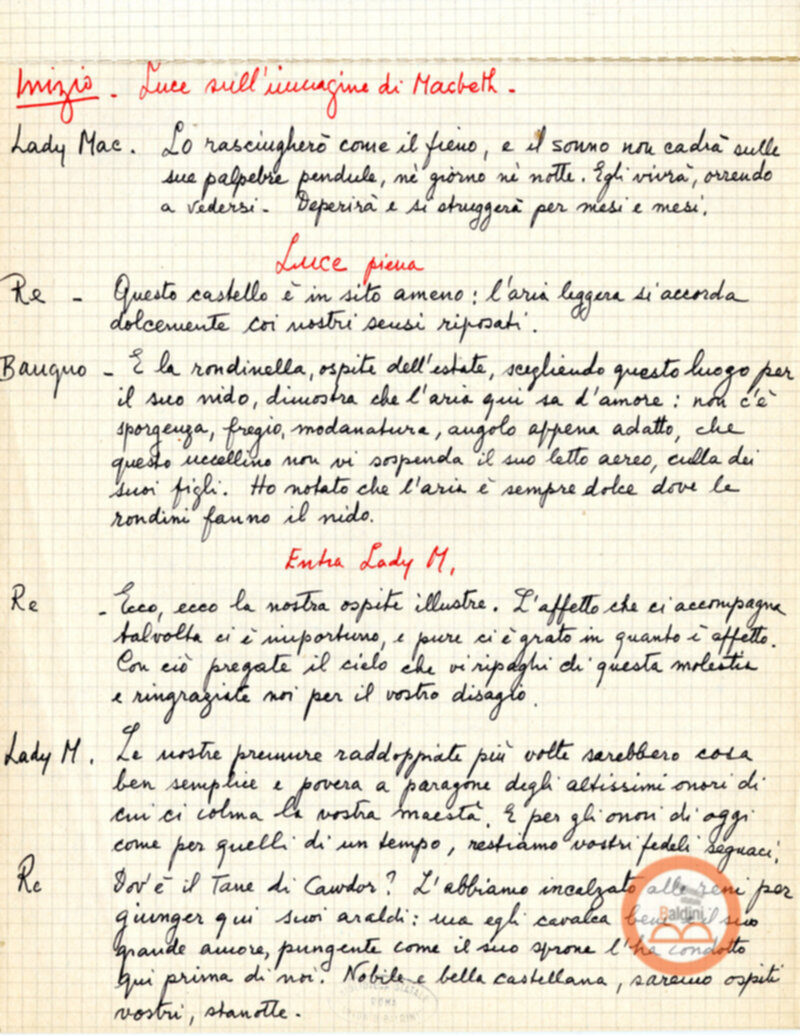 Inizio - Luce sull'immagine di Macbeth -
Lady Mac. Lo rasciugherò come il fieno, e il sonno non cadrà sulle
sue palpebre pendule, nè giorno nè notte. Egli vivrà, orrendo
a vedersi - Deperirà e si struggerà per mesi e mesi.
Luce piena
Re - Questo castello è in sito ameno: l'aria leggera si accorda
dolcemente coi nostri sensi riposati.
Banquo - E la rondinella, ospite dell'estate, scegliendo questo luogo per
il suo nido, dimostra che l'aria qui sa d'amore: non c'è
sporgenza, fregio, modanatura, angolo appena adatto, che
questo uccellino non vi sospenda il suo letto aereo, culla dei
suoi figli. Ho notato che l'aria è sempre dolce dove le
rondini fanno il nido.
Entra Lady M.
Re - Ecco, ecco la nostra ospite illustre. L'affetto che ci accompagna
talvolta ci è importuno, e pure ci è grato in quanto è affetto.
Con ciò pregate il cielo che vi ripaghi di questa molestia
e ringraziate noi per il vostro disagio.
Lady M. Le nostre premure raddoppiate più volte sarebbero cosa
ben semplice e povera a paragone degli altissimi onori di
cui ci colma la vostra maestà. E per gli onori di oggi
come per quelli di un tempo, restiamo vostri fedeli seguaci.
Re Dov'è il Tane di Cawdor? L'abbiamo incalzato alle reni per
giunger qui suoi araldi: ma egli cavalca bene e il suo
grande amore, pungente come il suo sprone l'ha condotto
qui prima di noi. Nobile e bella castellana, saremo ospiti
vostri, stanotte.
Baldini
ROMA